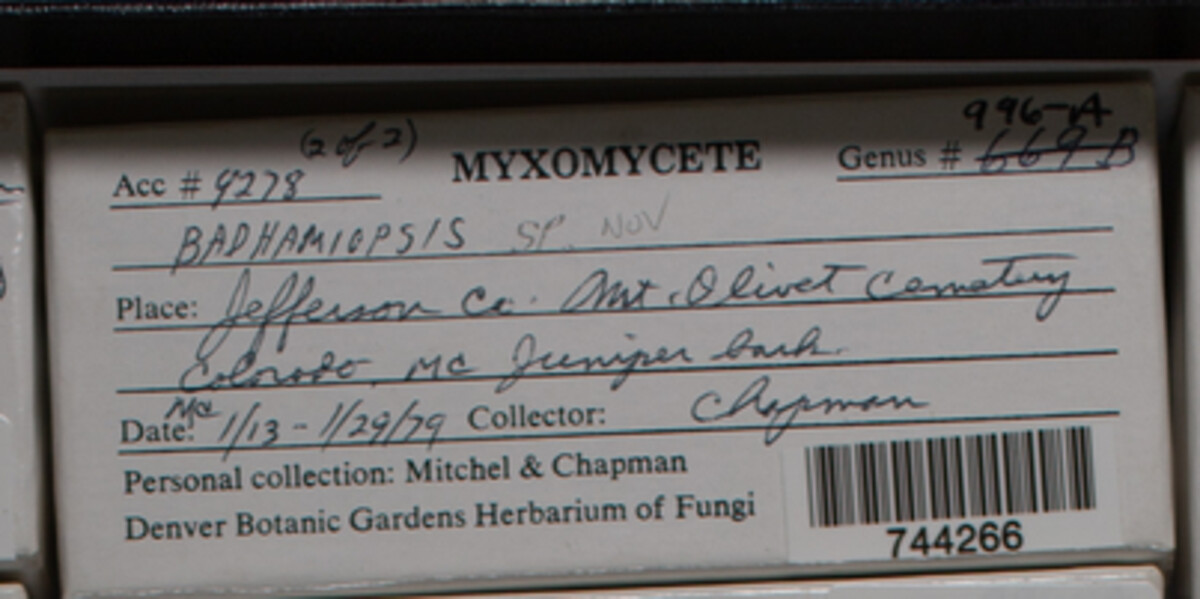 996-A
(2 of 2)
Acc # 9278 MYXOMYCETE Genus # 669 B
BADHAMIOPSIS SP. NOV
Place: Jefferson Co. Mt. Olivet Cemetery
Colorado. MC Juniper bark.
MC
Date: 1/13 - 1/29/79 Collector: Chapman
Personal collection: Mitchel & Chapman
Denver Botanic Gardens Herbarium of Fungi
744266